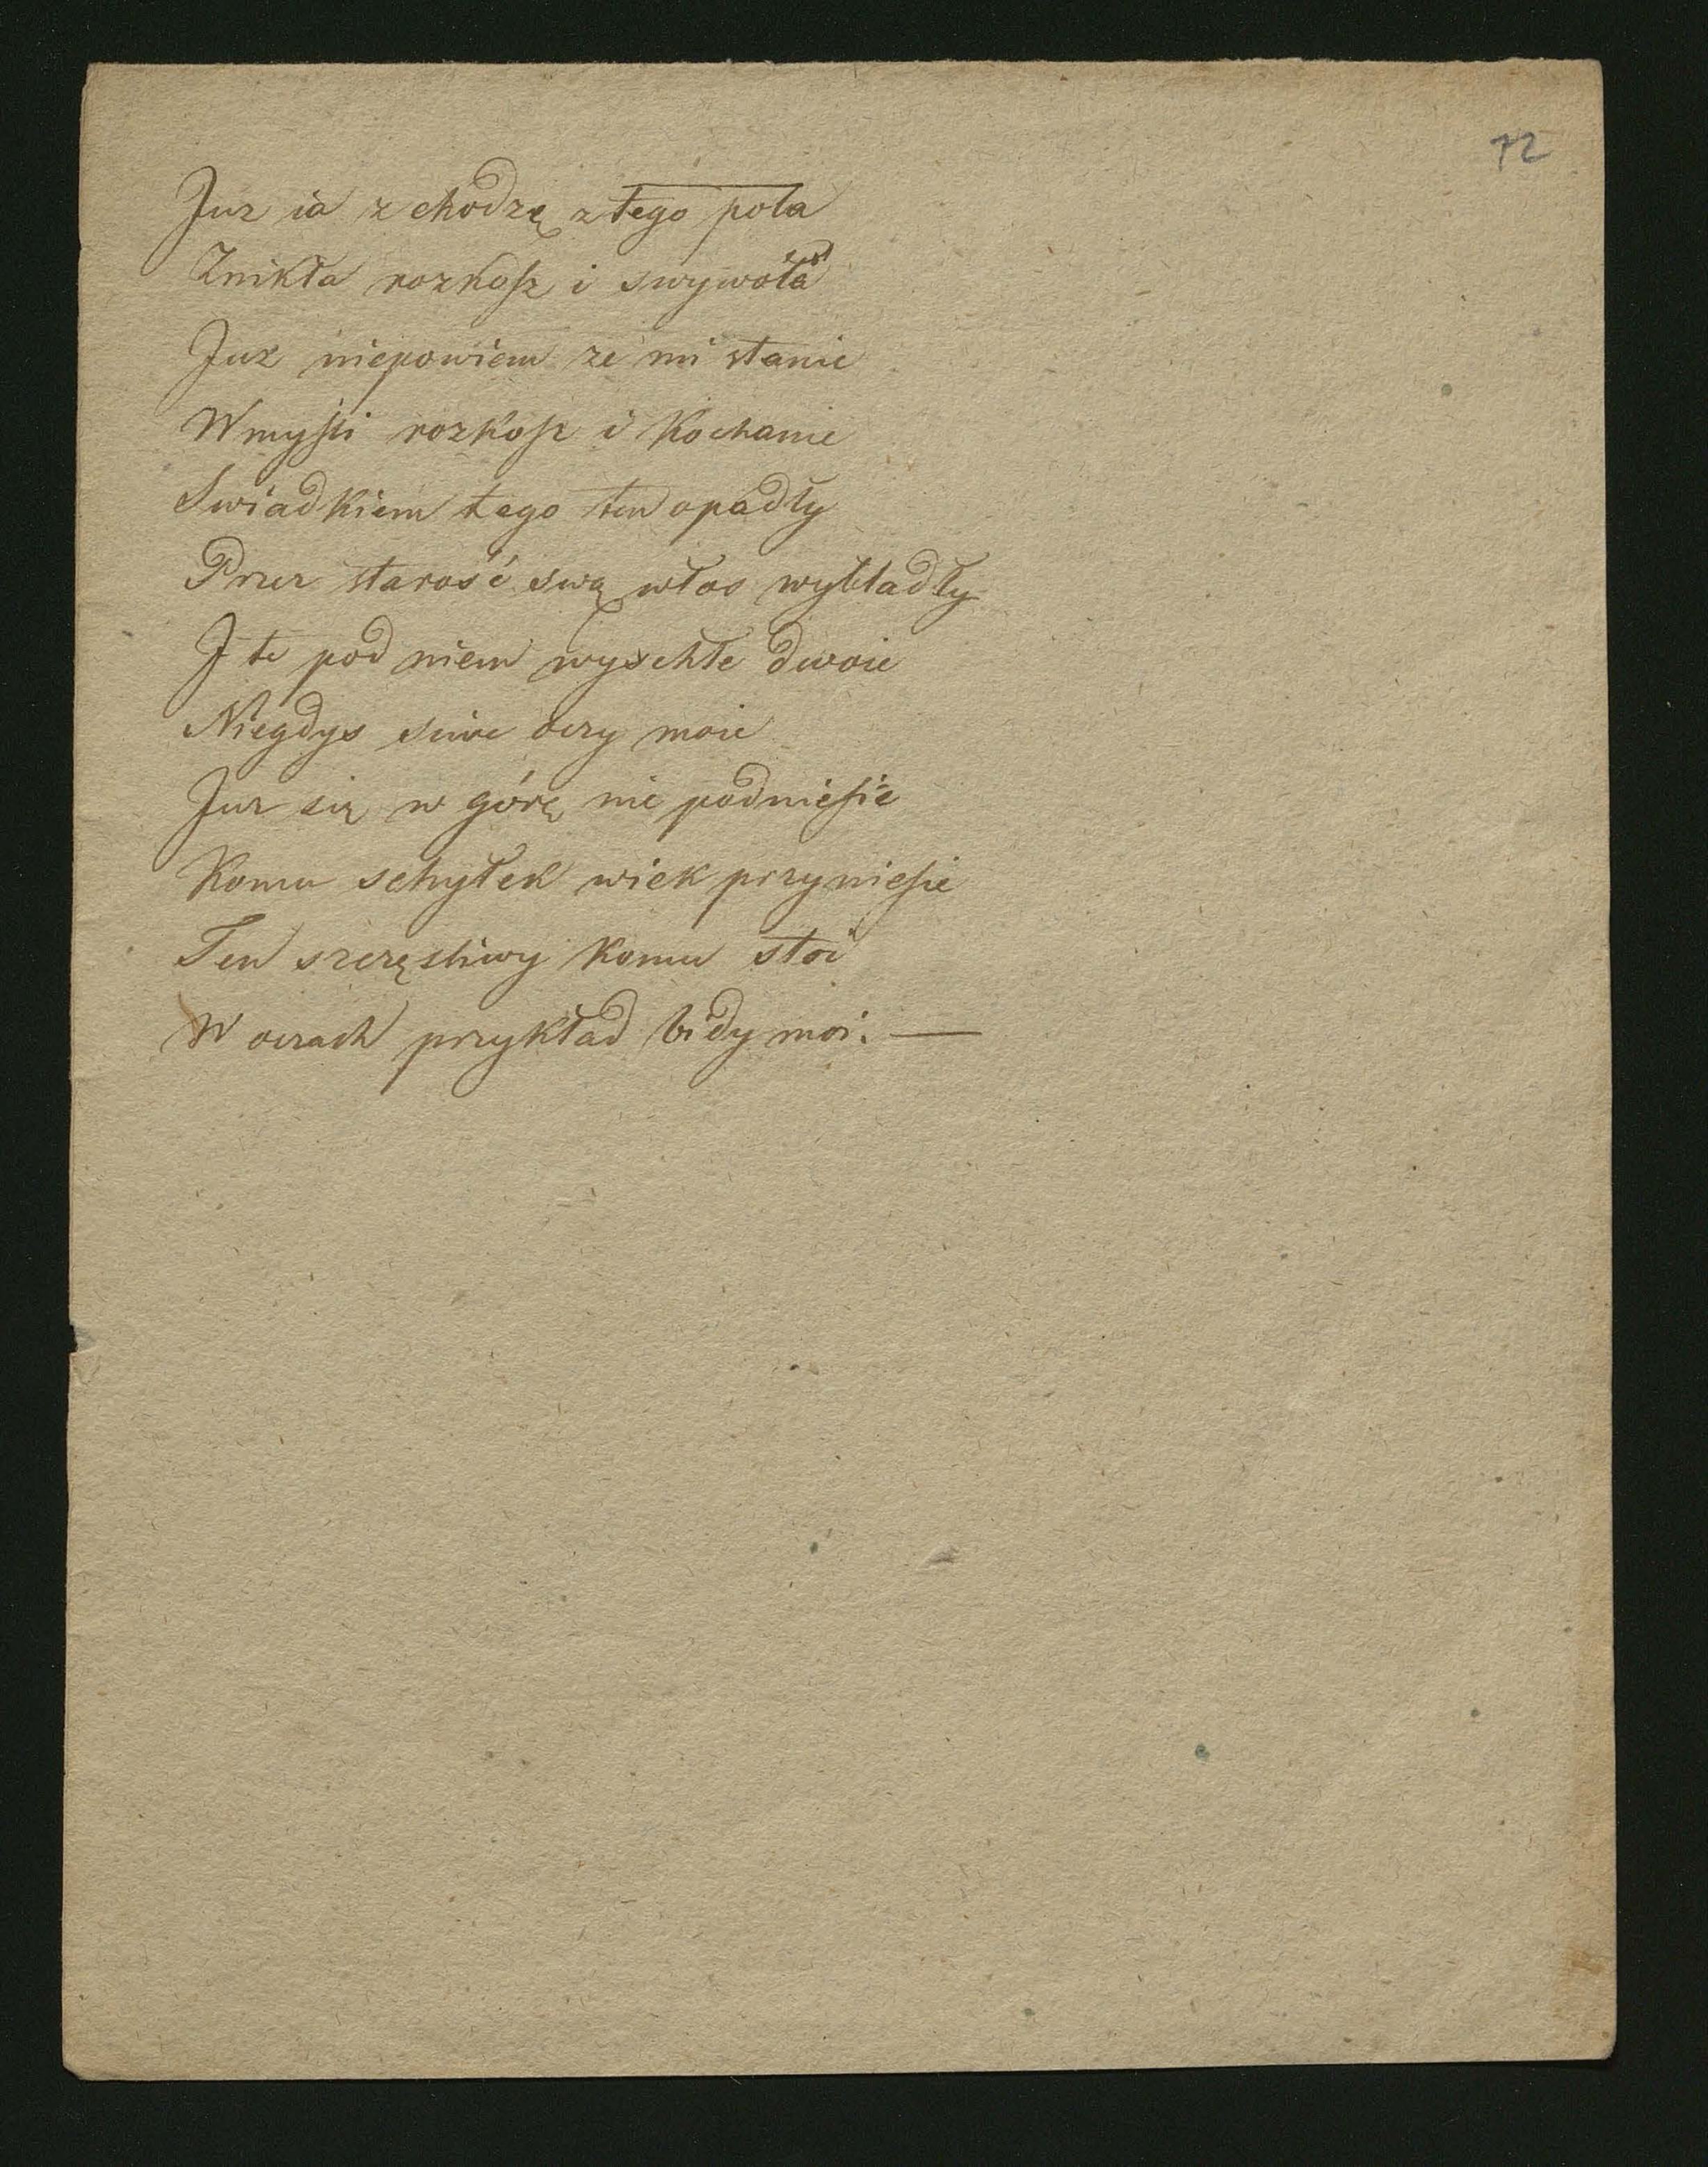 72
Juz ia z chodzę z tego pola
Znikła rozkosz i swywola
Juz niepowiem ze mi stanie
W myśli rozkosz i kochanie
Swiadkiem tego ten opadły
Przez starość swą włos wybladły
I te pod niem wyschłe dwoie
Niegdys siwe oczy moie
Juz się w górę nie podniesie
Komu schyłek wiek przyniesie
Ten szczęsliwy komu stoi
W oczach przykład bidy moi. —